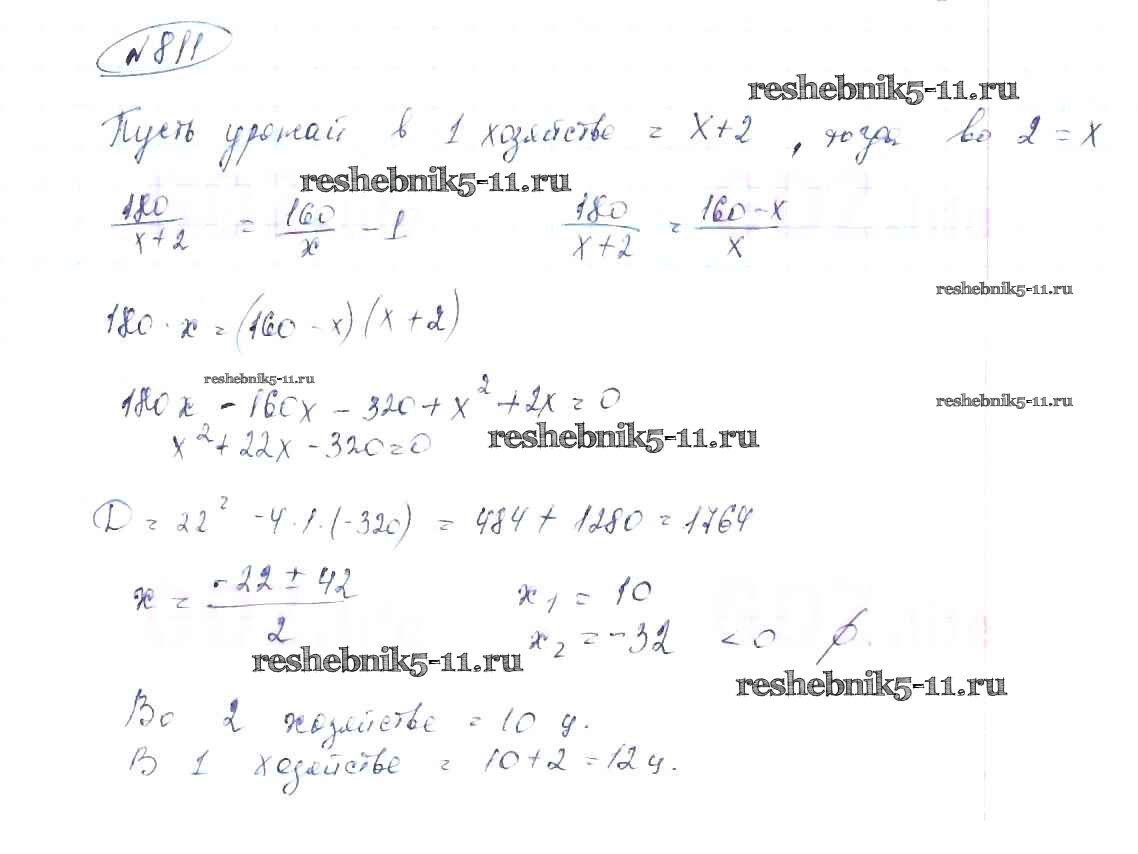 №811
reshebnik5-11.ru
Пусть урожай в 1 хозяйстве = x+2, тогда во 2 = x
reshebnik5-11.ru
180/(x+2) = 160/x - 1    180/(x+2) = (160-x)/x
reshebnik5-11.ru
180·x = (160-x)(x+2)
reshebnik5-11.ru
180x - 160x - 320 + x² + 2x = 0
reshebnik5-11.ru
x² + 22x - 320 = 0
reshebnik5-11.ru
D = 22² - 4·1·(-320) = 484 + 1280 = 1764
x = (-22 ± 42)/2    x₁ = 10
x₂ = -32 < 0 ∅.
reshebnik5-11.ru
reshebnik5-11.ru
Во 2 хозяйстве = 10 ц.
В 1 хозяйстве = 10+2 = 12 ц.